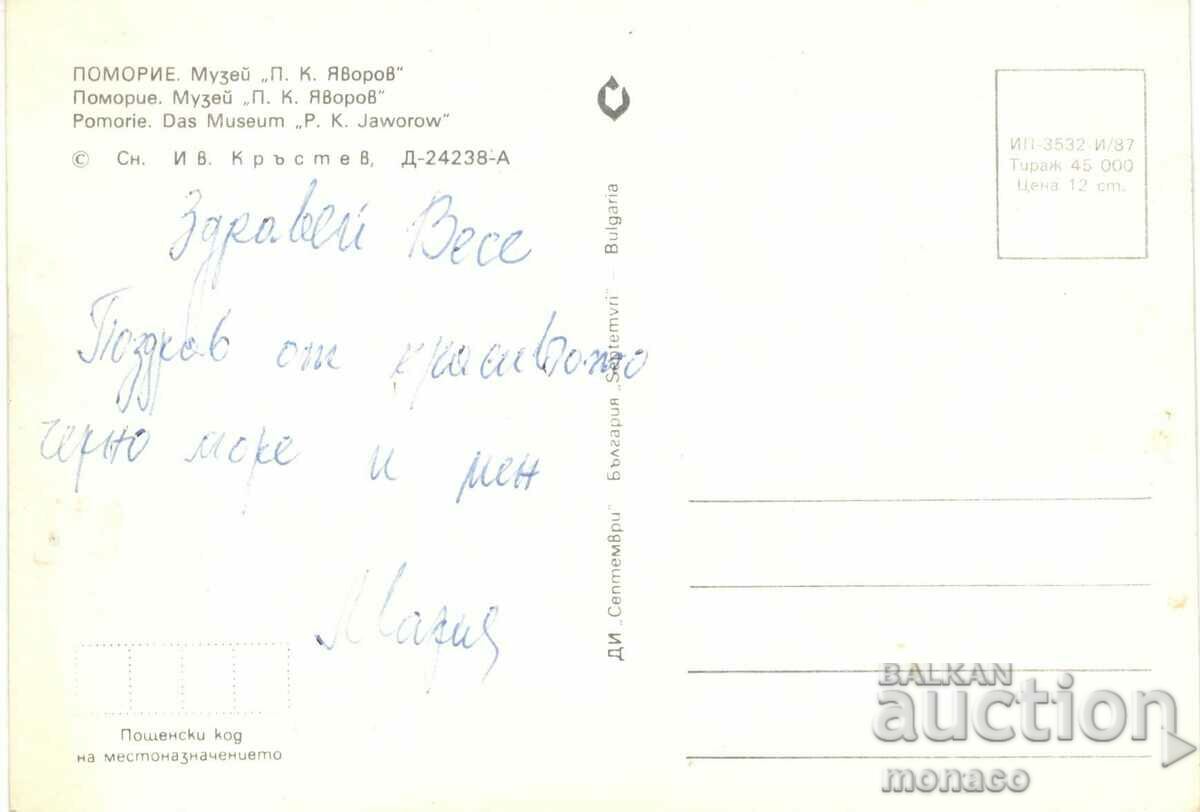 ПОМОРИЕ. Музей „П. К. Яворов"
Поморие. Музей „П. К. Яворов"
Pomorie. Das Museum „P. K. Jaworow"
© Сн. Ив. Кръстев, Д-24238-А
Здравей Весе
Поздрав от красивото
черно море и мен
Мария
Пощенски код
на местоназначението
ДИ „Септември" България „Septemvri" – Bulgaria
ИП-3532-И/87
Тираж 45 000
Цена 12 ст.
BALKAN
auction
monaco